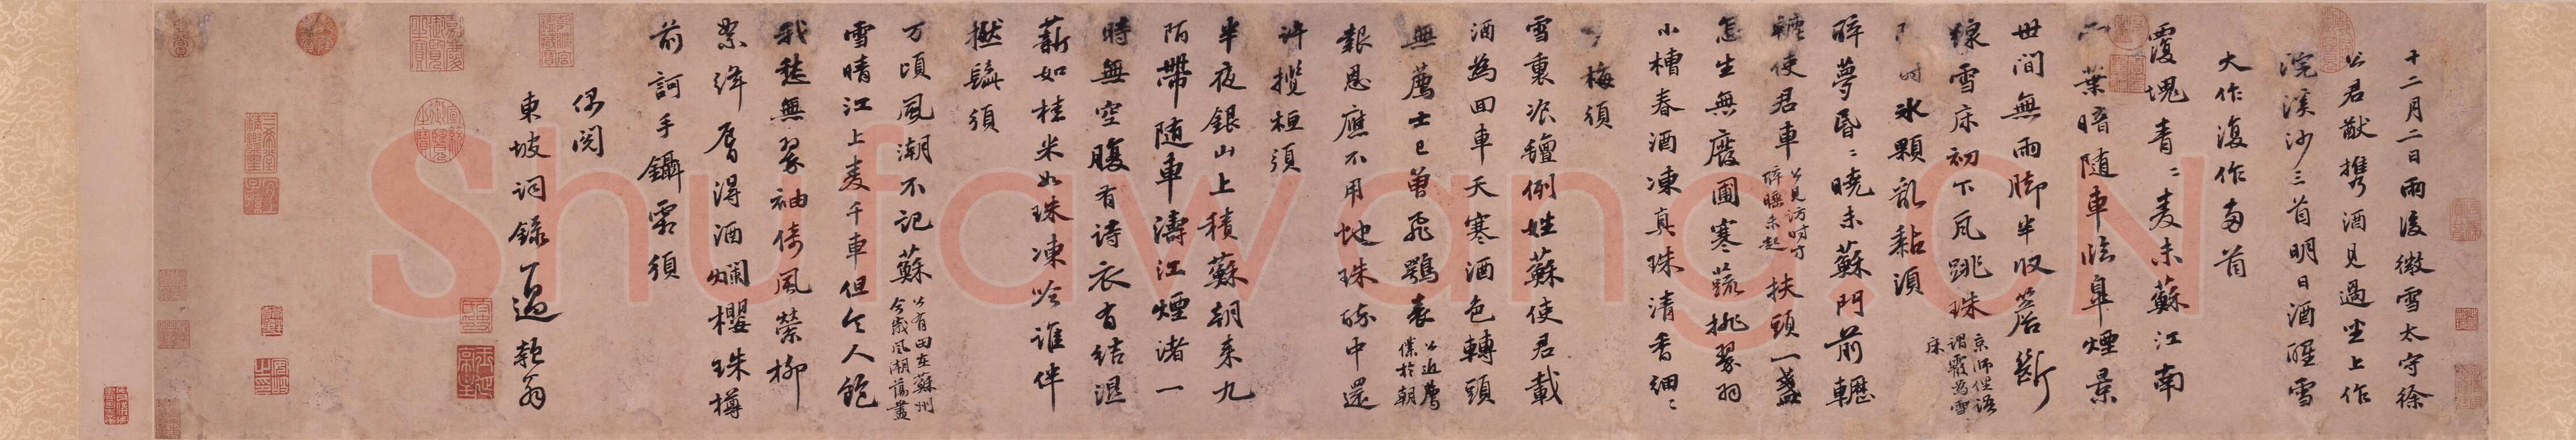 十二月二日雨後微雪太守徐
公君猷攜酒見過坐上作
浣溪沙三首明日酒醒雪
大作復作兩首
覆塊青〻麥未蘇江南
葉暗随車臨皋煙景
世間無雨脚半收簷斷
線雪床初下瓦跳珠
京師俚語
謂霰為雪
床
時冰顆乱黏湏
醉夢昏〻曉未蘇門前轣
轆使君車
公見訪时方
醉睡未起
扶頭一盞
怎生無廢圃寒蔬挑翠羽
小槽春酒凍真珠清香細〻
梅須
雪裏飱氊例姓蘇使君載
酒為回車天寒酒色轉頭
無薦士已曾飛鶚表
公近薦
僕於朝
報恩應不用虵珠醉中還
許攬桓須
半夜銀山上積蘇朝来九
陌帶随車濤江煙渚一
時無空腹有詩衣有結湿
薪如桂米如珠凍吟誰伴
撚髭須
万頃風潮不記蘇
公有田在蘇州
今歲風潮蕩盡
雪晴江上麦千車但令人飽
我愁無翠袖倚風縈柳
絮絳唇得酒爛櫻珠樽
前訶手鑷霜須
偶閱
東坡詞錄一過 款翁
Shufawang.CN